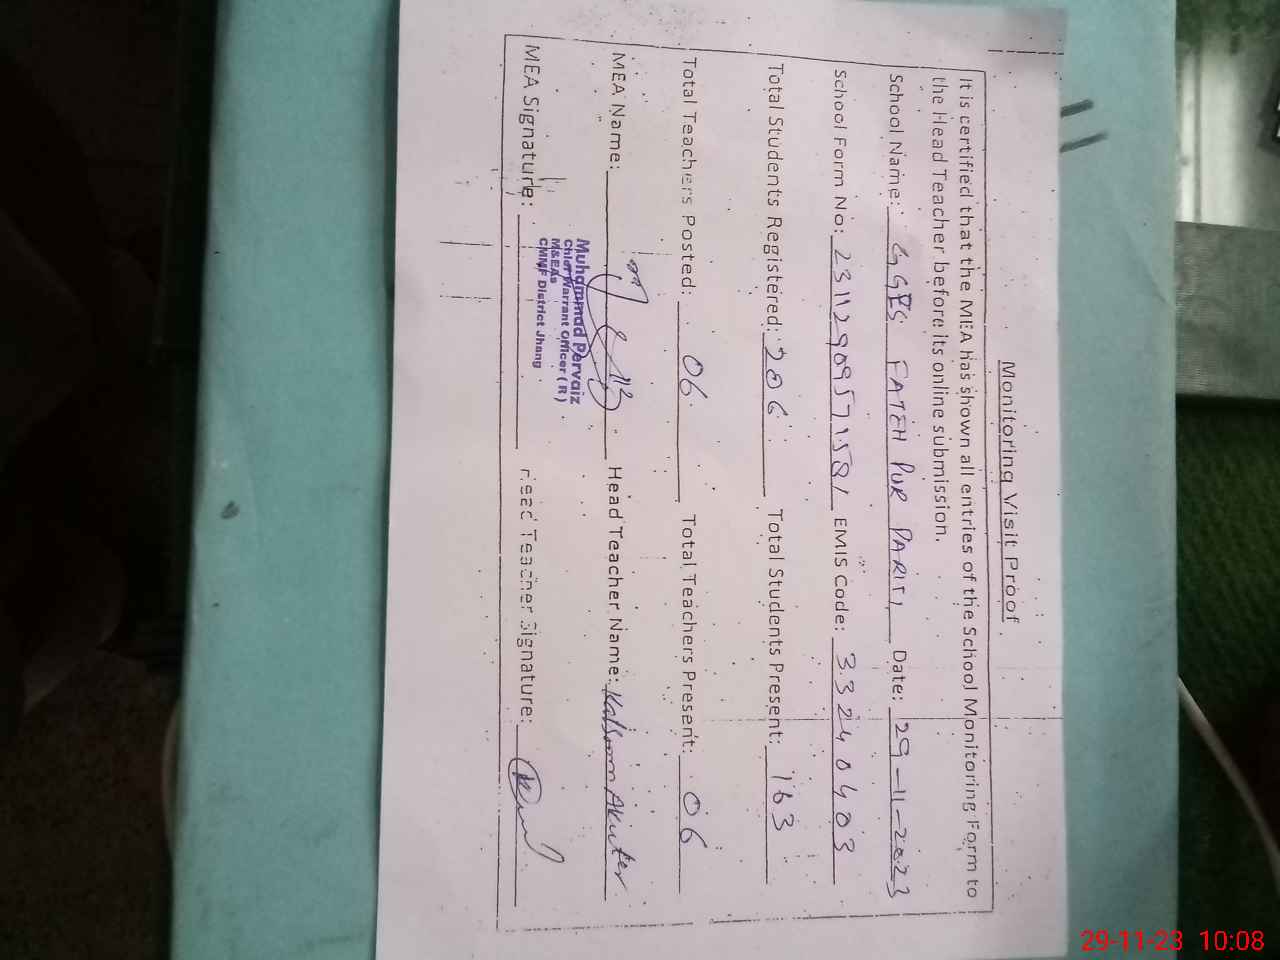 Monitoring Visit Proof
It is certified that the MEA has shown all entries of the School Monitoring Form to
the Head Teacher before its online submission.
School Name: GGES FATEH PUR Date: 29-11-2023
School Form No: EMIS Code: 33240403
Total Students Registered: 206 Total Students Present: 163
Total Teachers Posted: 06 Total Teachers Present: 06
MEA Name: Head Teacher Name: Kalsoom Akhter
Muhammad Pervaiz
Chief Warrant Officer (R)
M&EAs
CMMF District Jhang
MEA Signature: Head Teacher Signature:
29-11-23 10:08